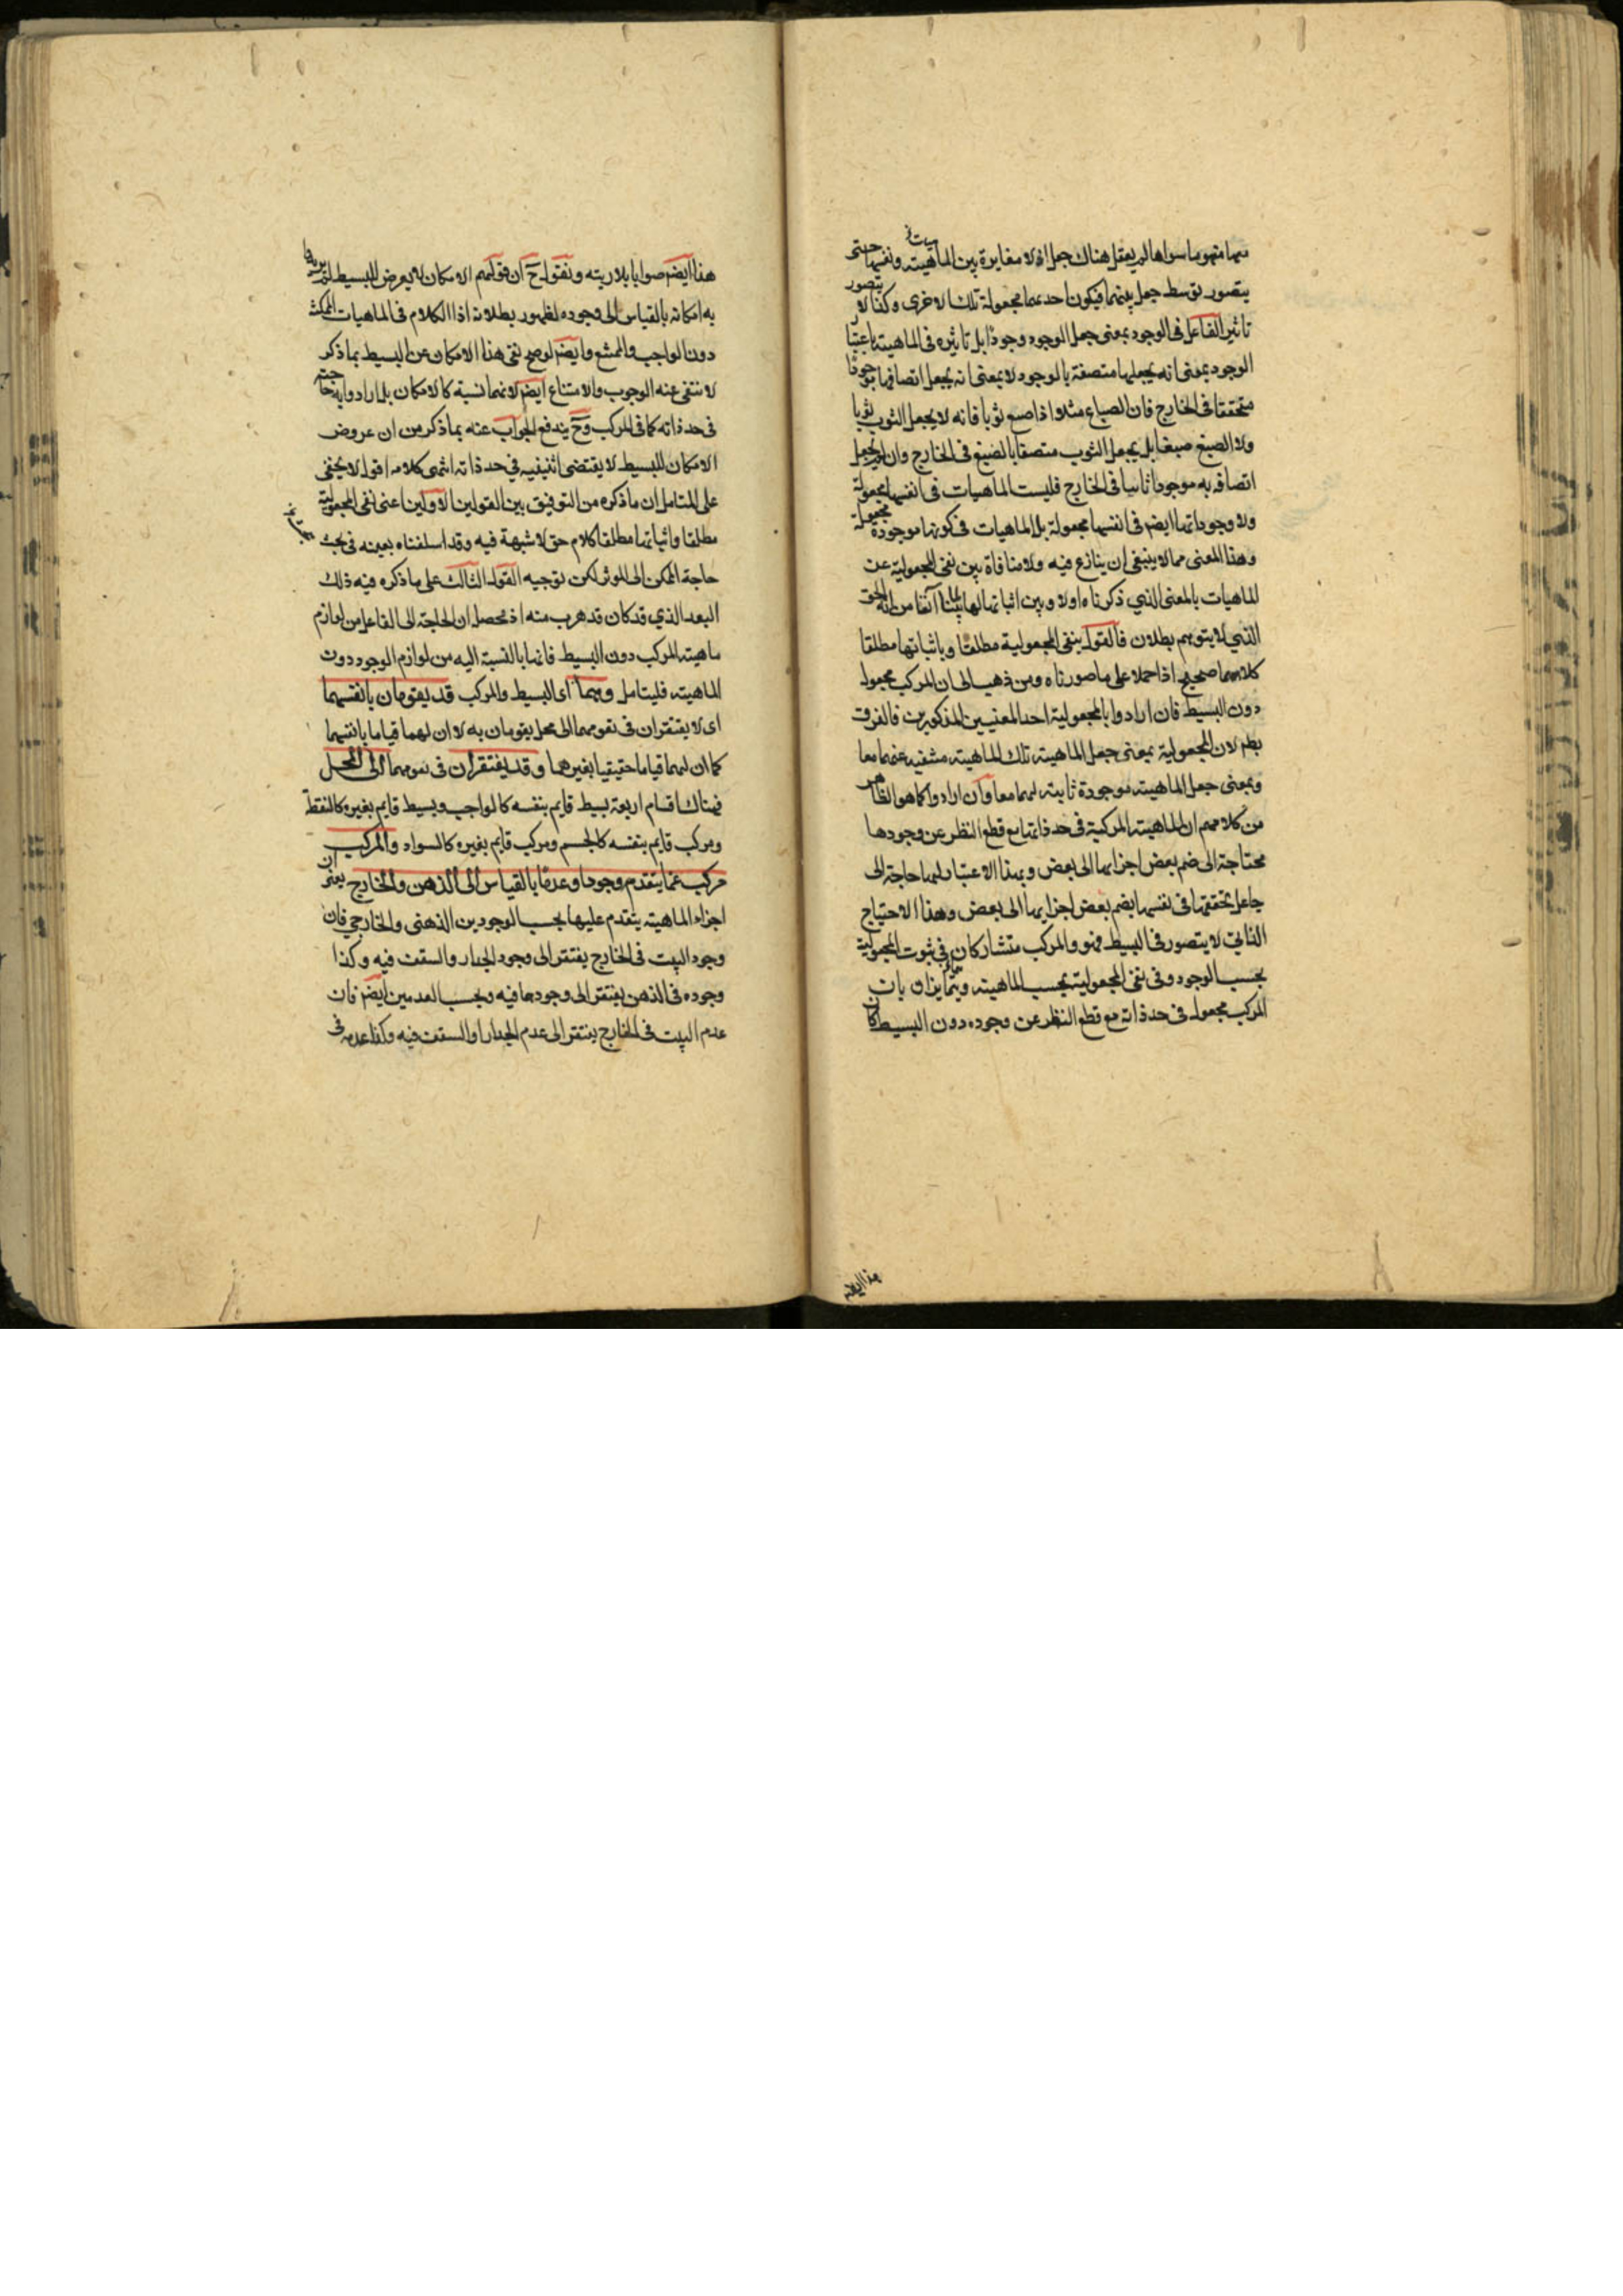 معها مفهوما سواها لم يعقل هناك جعل اذ لا مغايرة بين الماهية ونفسها حتى
يتصور توسط جعل بينهما فيكون احدهما مجعولة تلك الاخرى وكذا لا يتصور
تاثير الفاعل فى الوجود بمعنى جعل الوجود وجودا بل تاثيره فى الماهية باعتبا
الوجود بمعنى انه يجعلها متصفة بالوجود لا بمعنى انه يجعل اتصافها موجودا
متحققا فى الخارج فان الصباغ مثلا اذا صبغ ثوبا فانه لا يجعل الثوب ثوبا
ولا الصبغ صبغا بل يجعل الثوب متصفا بالصبغ فى الخارج وان لم يجعل
اتصافه به موجودا ثابتا فى الخارج فليست الماهيات فى انفسها مجعولة
ولا وجوداتها ايضم فى انفسها مجعولة بل الماهيات فى كونها موجودة مجعولة
وهذا المعنى مما لا ينبغى ان ينازع فيه ولا منافاة بين نفى المجعولية عن
الماهيات بالمعنى الذي ذكرناه اولا وبين اثباتها لها بما بينا آنفا من انه الحق
الذي لا يتوهم بطلان فالقول بنفى المجعولية مطلقا وباثباتها مطلقا
كلاهما صحيح اذا حملا على ما صورناه ومن ذهب الى ان المركب مجعول
دون البسيط فان ارادوا بالمجعولية احد المعنيين المذكورين فالفرق
بطم لان المجعولية بمعنى جعل الماهية تلك الماهية منتفية عنهما معا
وبمعنى جعل الماهية موجودة ثابتة لهما معا وان ارادوا كما هو الظاهر
من كلامهم ان الماهية المركبة فى حد ذاتها مع قطع النظر عن وجودها
محتاجة الى ضم بعض اجزايها الى بعض وبهذا الاعتبار لها حاجة الى
جاعل يحققها فى نفسها بضم بعض اجزايها الى بعض وهذا الاحتياج
الذاتى لا يتصور فى البسيط فهو والمركب متشاركان فى ثبوت المجعولية
بحسب الوجود وفى نفى المجعولية بحسب الماهية ويتمايزان بان
المركب مجعول فى حد ذاته مع قطع النظر عن وجوده دون البسيط كان
هذا ايضم
هذا ايضم صوابا بلا ريبة ونقول ح ان قولهم الامكان لا يعرض للبسيط لم يريدوا
به امكانه بالقياس الى وجوده لظهور بطلانه اذ الكلام فى الماهيات الممكنة
دون الواجب والممتنع وايضم لو صح نفى هذا الامكان عن البسيط بما ذكر
لانتفى عنه الوجوب والامتناع ايضم لانهما نسبة كالامكان بل ارادوا به حاجته
فى حد ذاته كما فى المركب وح يندفع الجواب عنه بما ذكر من ان عروض
الامكان للبسيط لا يقتضى اثنينيه في حد ذاته انتهى كلامه اقول لا يخفى
على المتامل ان ما ذكره من التوفيق بين القولين الاولين اعنى نفى المجعولية
مطلقا واثباتها مطلقا كلام حق لا شبهة فيه وقد اسلفناه بعينه فى بحث
حاجة الممكن الى المؤثر لكن توجيه القول الثالث على ما ذكره فيه ذلك
البعد الذي قد كان قد هرب منه اذ محصل ان الحاجة الى الفاعل من لوازم
ماهية المركب دون البسيط فانها بالنسبة اليه من لوازم الوجود دون
الماهية فليتامل وهما اى البسيط والمركب قد يقومان بانفسهما
اى لا يفتقران فى تقومهما الى محل يقومان به لا ان لهما قياما بانفسهما
كما ان لهما قياما حقيقيا بغيرهما وقد يفتقران فى تقومهما الى المحل
فهناك اقسام اربعة بسيط قايم بنفسه كالواجب وبسيط قايم بغيره كالنقطة
ومركب قايم بنفسه كالجسم ومركب قايم بغيره كالسواد والمركب
مركب عما يتقدم وجودا وعدما بالقياس الى الذهن والخارج يعنى ان
اجزاء الماهية يتقدم عليها بحسب الوجودين الذهنى والخارجي فان
وجود البيت فى الخارج يفتقر الى وجود الجدار والسقف فيه وكذا
وجوده فى الذهن يفتقر الى وجودها فيه وبحسب العدمين ايضم فان
عدم البيت فى الخارج يفتقر الى عدم الجدار او السقف فيه وكذا عدمه فى